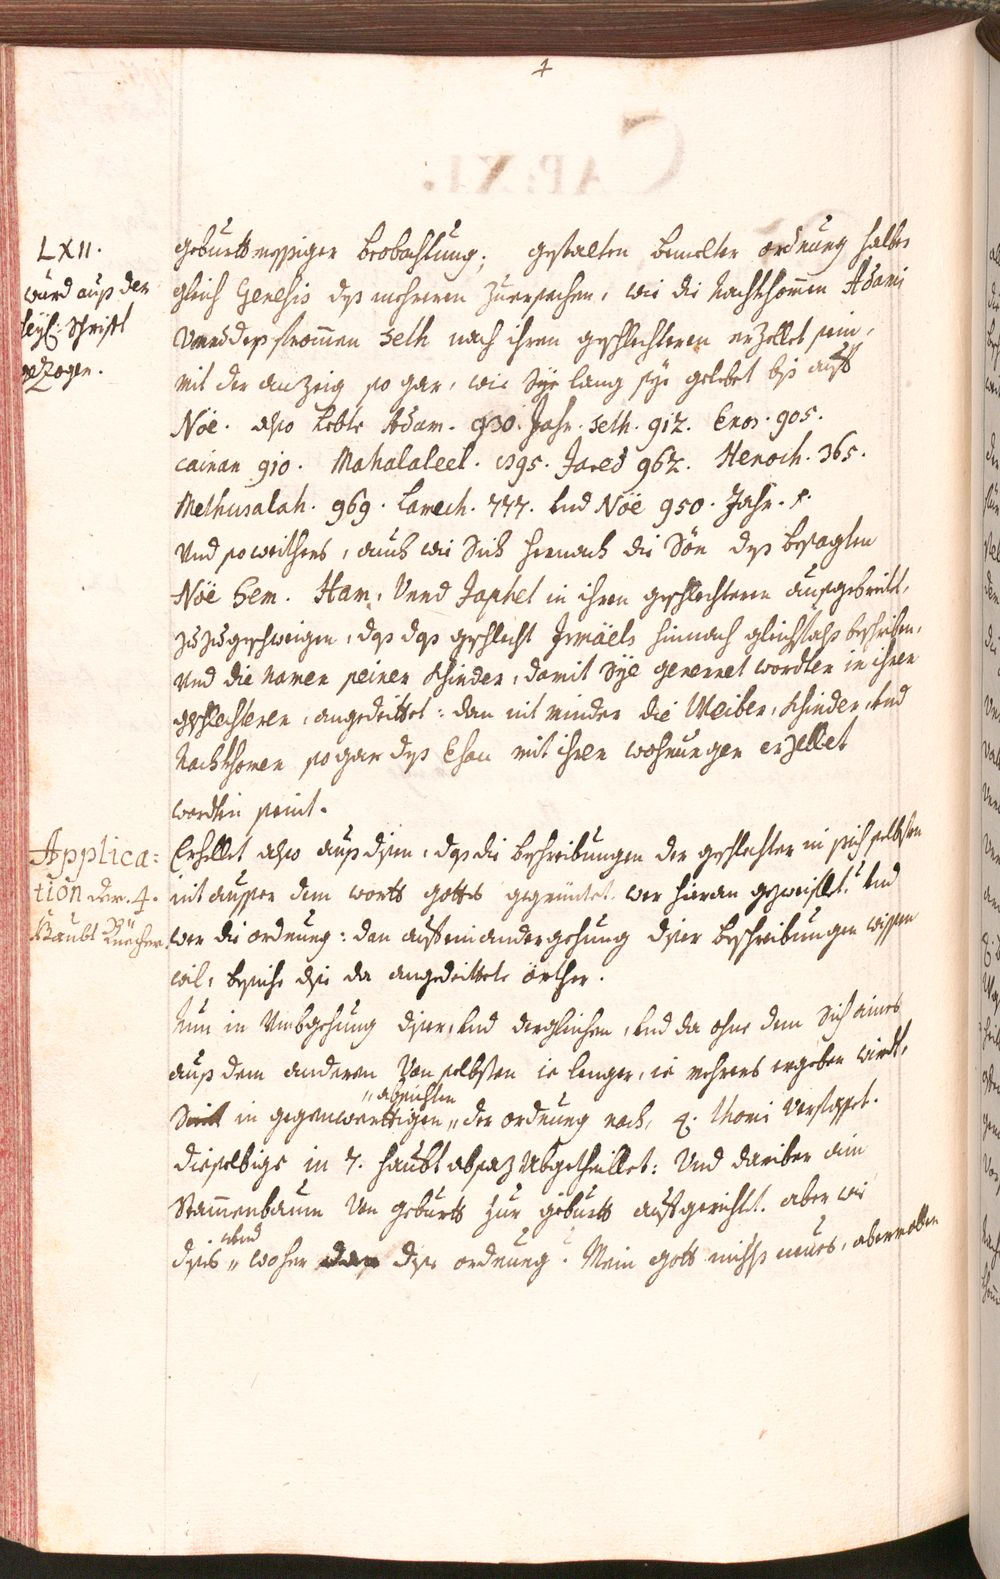 LXII.
würd auß der
heyl: Schrifft
gezogen.
geburttmessiger beobachtung; gestalten bemelter ordnung halber
gleich Genesis dess mehreren zuersechen, wie die Nachkhommen Adami
Vnnd dess frommen Seth nach ihren geschlechteren erzellet sein,
mit der anzeig so gar, wie Sye lang sye gelebet biß auff
Nöe. also lebte Adam. 930. Jahr. Seth. 912. Enos. 905.
Cainan 910. Mahalaleel. 895. Jared 962. Henoch. 365.
Methusalah. 969. Lamech. 777. Vnd Nöe 950. Jahr.
Vnd so weithers, auch wie Sich hernach die Sön dess besagten
Nöe Sem. Ham, Vnnd Japhet in ihren geschlechteren außgebreitt,
zugeschweigen, dass dass geschlecht Ismäels hinnach gleichfahls beschriben,
Vnd die namen seiner Khinder, damit Sye genennet wordten in ihren
geschlechteren, angedeittet: dan nit minder die Weiber, Khinder, Vnd
Nachkhomen so gar dess Esau mit ihren wohnungen erzellet
wordten seint.
Applica=
tion der 4.
Haubt Bücher.
Erhellet also auß disem, dass die beschreibungen der geschlechter in sich selbsten
nit ausser dem worth gottes gegrüntet. wer hieran gezweiflet? Vnd
wer die ordnung: dan aufeinandergehung diser beschreibungen wissen
wil, besiche die da angedeittete örther.
Nun in Vmbgehung diser, Vnd dergleichen, Vnd da ohne dem Sich aines
auß dem anderen Von selbsten ie lenger, ie mehrers ergeben wirdt,
in gegenwerttigen „ absichten „ der ordnung nach, 4. Thomi Verfasset.
dieselbige in 7. haubt absaz abgetheillet: Vnd dariber ain
Stammenbaum Von geburth zur geburth auffgerichtet. aber wie
dises „ vnd „ woher dise ordnung. Mein gott nichts neues, abermallen